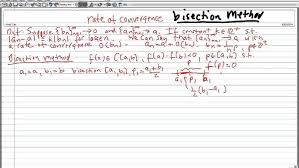 rate of convergence bisection method
Def: Suppose {bn}→0 and {an}→a. If constant k∈ℝ⁺ s.t.
|an-a|≤k|bn| for large n. We can say that {an} → a with
a rate of convergence O(bn) an = a + O(bn)
Bisection method f(x)∈C[a,b], f(a)·f(b)<0, p∈[a,b] s.t.
f(p)=0
a₁=a, b₁=b bisection [a,b], p₁=
a₁ p₁ b₁
½(b₁-a₁)